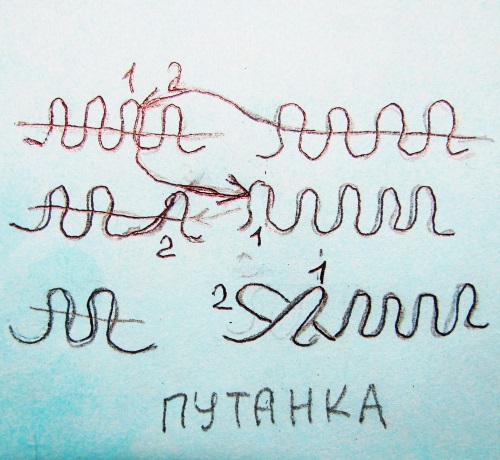 1 2
2 1
2 1
ПУТАНКА